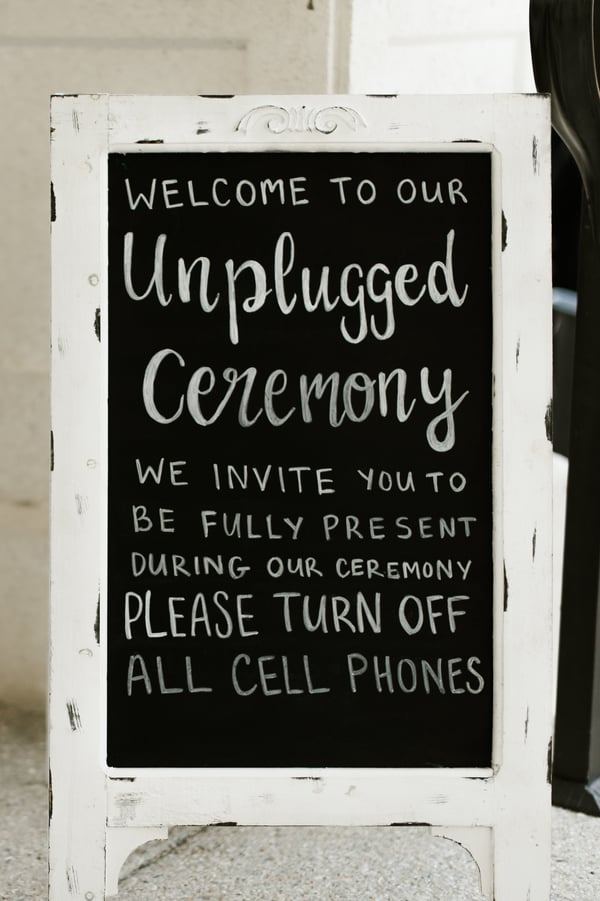 WELCOME TO OUR
Unplugged
Ceremony
WE INVITE YOU TO
BE FULLY PRESENT
DURING OUR CEREMONY
PLEASE TURN OFF
ALL CELL PHONES